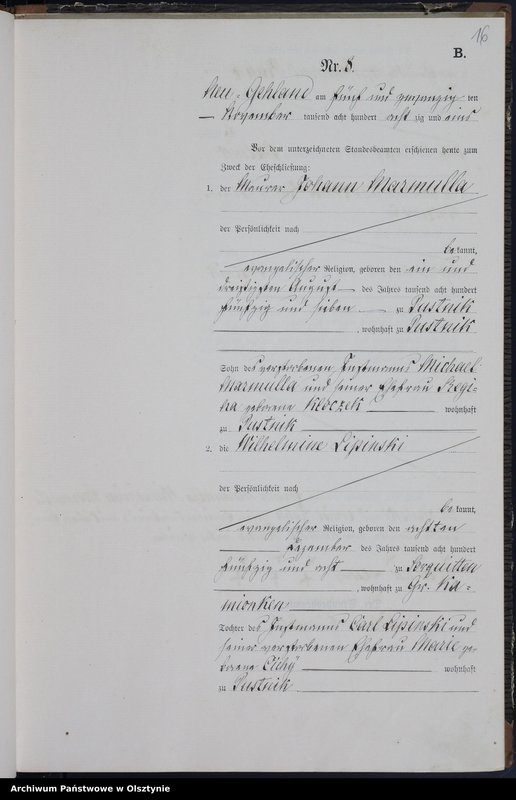 16
B.
Nr. 8.
Neu-Gehland am fünf und zwanzig ten
November tausend acht hundert acht zig und eins
Vor dem unterzeichneten Standesbeamten erschienen heute zum
Zweck der Eheschließung:
1. der Maurer Johann Marmulla
der Persönlichkeit nach
be kannt,
evangelischer Religion, geboren den ein und
dreißigsten August des Jahres tausend acht hundert
fünfzig und sieben zu Pustnik
, wohnhaft zu Pustnik
Sohn des verstorbenen Instmanns Michael
Marmulla und seiner Ehefrau
geborene Kloczek wohnhaft
zu Pustnik
2. die Wilhelmine Lipinski
der Persönlichkeit nach
be kannt,
evangelischer Religion, geboren den achten
Dezember des Jahres tausend acht hundert
fünfzig und acht zu Sorquitten
, wohnhaft zu Gr. Ka-
mionken
Tochter des Instmanns Carl Lipinski und
seiner verstorbenen Ehefrau Marie ge-
borene Cichy wohnhaft
zu Pustnik
Archiwum Państwowe w Olsztynie